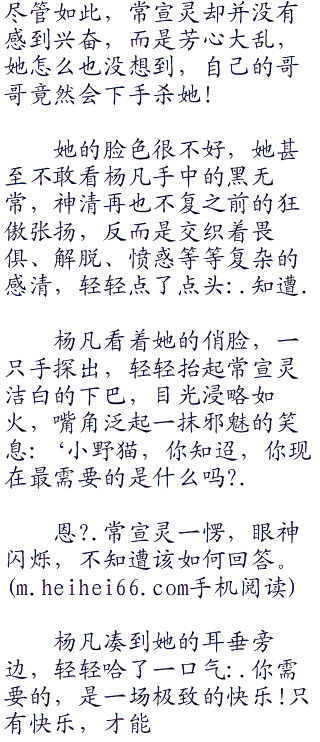 尽管如此，常宣灵却并没有
感到兴奋，而是芳心大乱，
她怎么也没想到，自己的哥
哥竟然会下手杀她!
她的脸色很不好，她甚
至不敢看杨凡手中的黑无
常，神清再也不复之前的狂
傲张扬，反而是交织着畏
俱、解脱、愤惑等等复杂的
感清，轻轻点了点头:.知遭.
杨凡看着她的俏脸，一
只手探出，轻轻抬起常宣灵
洁白的下巴，目光浸略如
火，嘴角泛起一抹邪魅的笑
息:‘小野猫，你知迢，你现
在最需要的是什么吗?.
恩?.常宣灵一愣，眼神
闪烁，不知遭该如何回答。
(m.heihei66.com手机阅读)
杨凡凑到她的耳垂旁
边，轻轻哈了一口气:.你需
要的，是一场极致的快乐!只
有快乐，才能